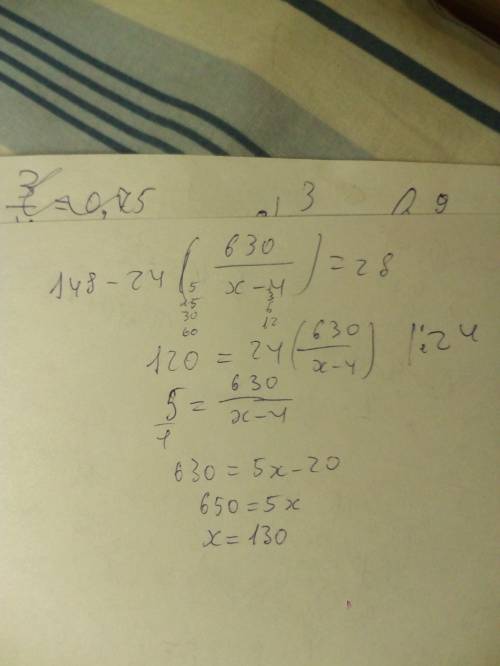 148 - 24 ( 630 / x-4 ) = 28
5
15
30
60
3
6
12
120 = 24 ( 630 / x-4 ) |:24
5/1 = 630 / x-4
630 = 5x - 20
650 = 5x
x = 130